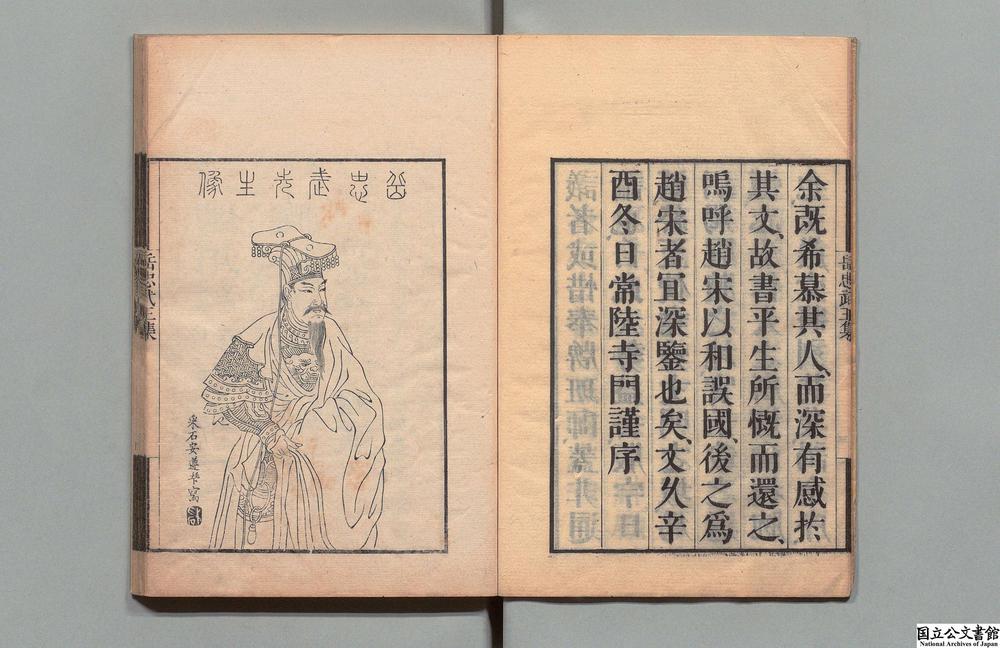 余既希慕其人、而深有感於
其文、故書平生所慨而還之、
嗚呼趙宋以和誤國、後之爲
趙宋者宜深鑒也矣、文久辛
酉冬日常陸寺門謹序
岳忠武王集
岳忠武先生像
采石安遵
岳忠武王集
国立公文書館
National Archives of Japan